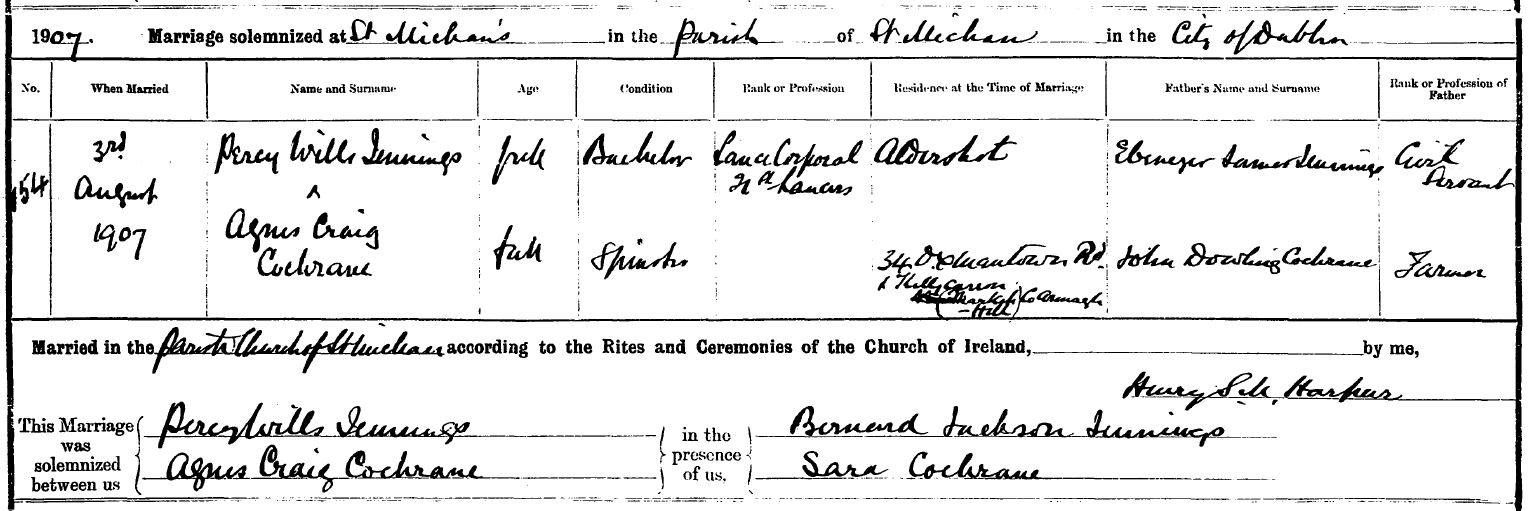 1907. Marriage solemnized at St Michan's in the Parish of St Michan in the City of Dublin
No. When Married Name and Surname Age Condition Rank or Profession Residence at the Time of Marriage Father's Name and Surname Rank or Profession of Father
154 3rd August 1907 Percy Wills Jennings full Bachelor Lance Corporal 21st Lancers Aldershot Ebenezer James Jennings Civil Servant
Agnes Craig Cochrane full Spinster 34 Oxmantown Rd. (Markethill) Co Armagh John Dowling Cochrane Farmer
Married in the Parish Church of St Michan according to the Rites and Ceremonies of the Church of Ireland, by me,
Henry Harpur
This Marriage was solemnized between us Percy Wills Jennings Agnes Craig Cochrane in the presence of us, Bernard Jackson Jennings Sara Cochrane